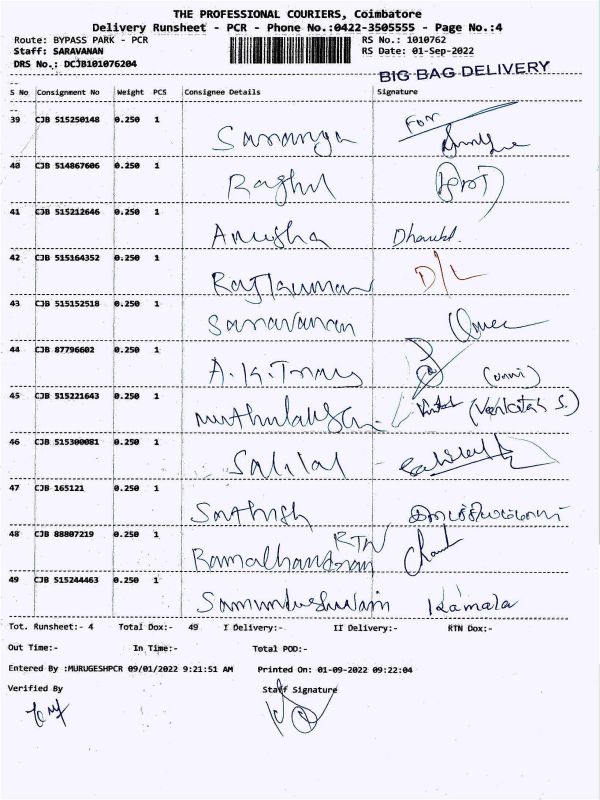 THE PROFESSIONAL COURIERS, Coimbatore
Delivery Runsheet - PCR - Phone No.:0422-3505555 - Page No.:4
Route: BYPASS PARK - PCR RS No.: 1010762
Staff: SARAVANAN RS Date: 01-Sep-2022
DRS No.: DCJB101076204
BIG BAG DELIVERY
S No Consignment No Weight PCS Consignee Details Signature
39 CJB 515250148 0.250 1 For
40 CJB 514867606 0.250 1 Raghul
41 CJB 515212646 0.250 1 Anusha
42 CJB 515164352 0.250 1 Rajkumar D/L
43 CJB 515152518 0.250 1 Saravanan
44 CJB 87796602 0.250 1
45 CJB 515221643 0.250 1 (Venkatesh S.)
46 CJB 515300081 0.250 1 Salilal
47 CJB 165121 0.250 1 Sathish
48 CJB 88807219 0.250 1 Ramachandran RTN
49 CJB 515244463 0.250 1 Kamala
Tot. Runsheet:- 4 Total Dox:- 49 I Delivery:- II Delivery:- RTN Dox:-
Out Time:- In Time:- Total POD:-
Entered By :MURUGESHPCR 09/01/2022 9:21:51 AM Printed On: 01-09-2022 09:22:04
Verified By Staff Signature